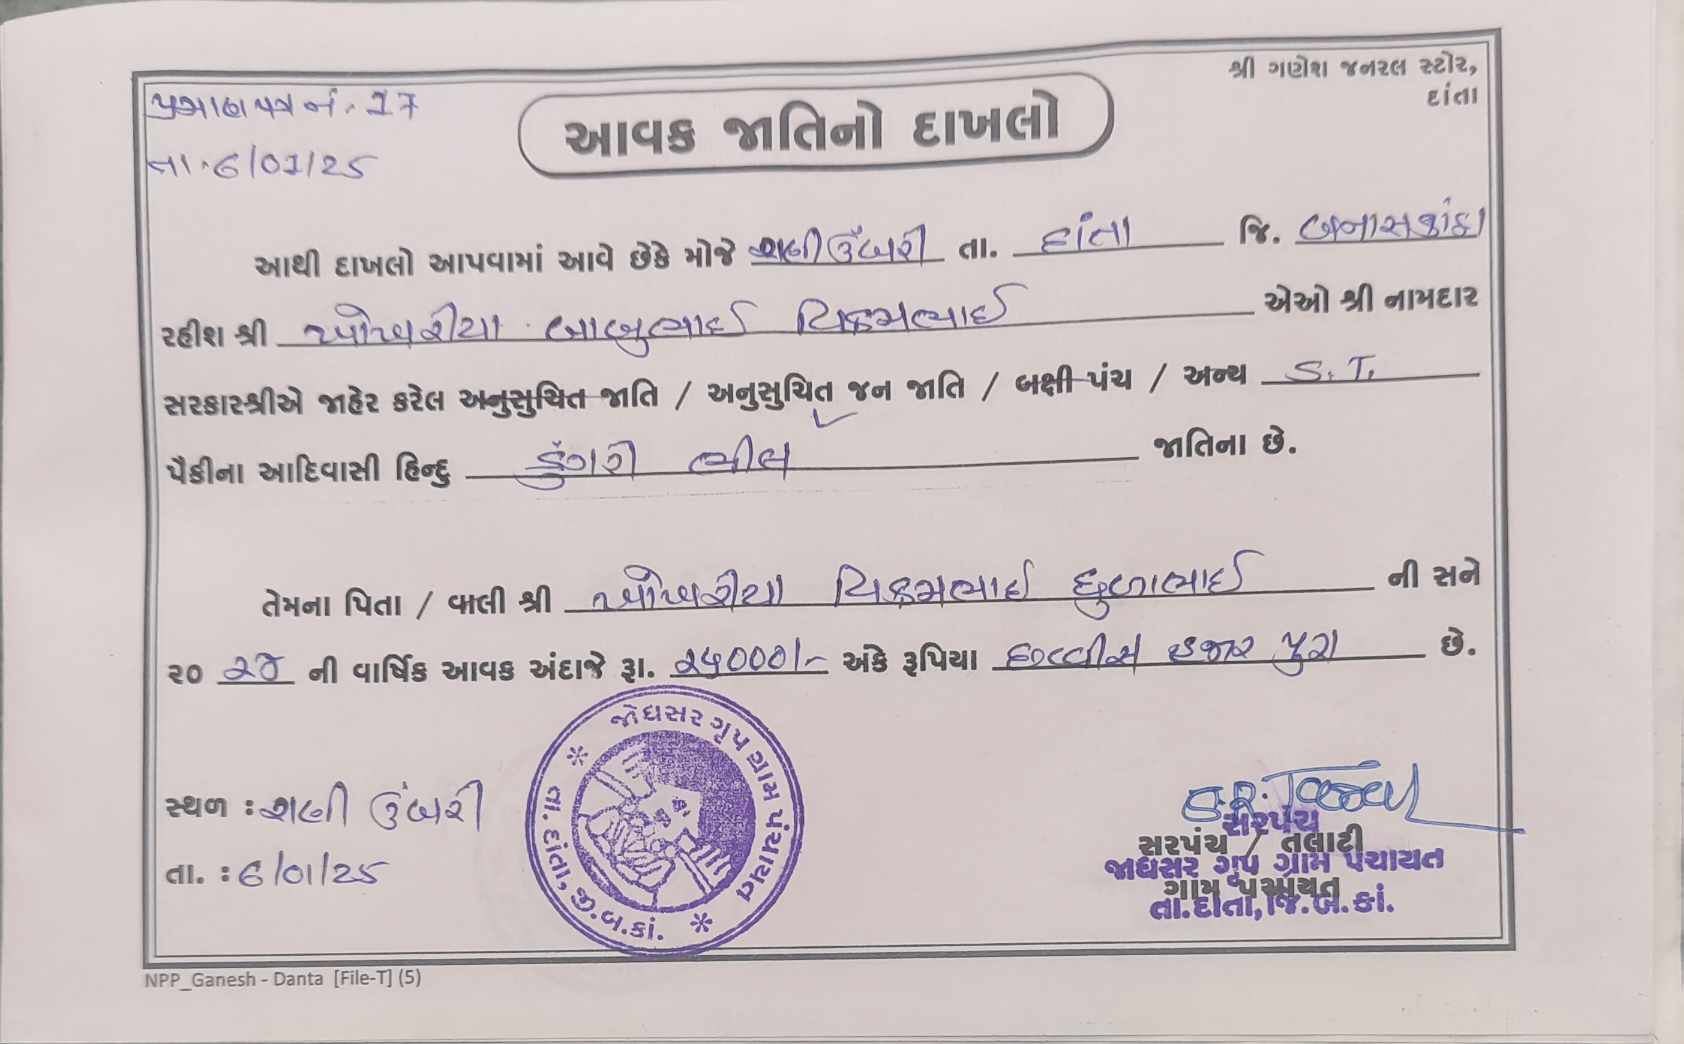 શ્રી ગણેશ જનરલ સ્ટોર,
દાંતા
પ્રમાણપત્ર નં. 17
તા.6/01/25
આવક જાતિનો દાખલો
આથી દાખલો આપવામાં આવે છેકે મોજે રાણીઉંબરી તા. દાંતા જિ. બનાસકાંઠા
રહીશ શ્રી ખોખરીયા બાબુભાઈ વિક્રમભાઈ એઓ શ્રી નામદાર
સરકારશ્રીએ જાહેર કરેલ અનુસુચિત જાતિ / અનુસુચિત જન જાતિ / બક્ષી પંચ / અન્ય S.T.
પૈકીના આદિવાસી હિન્દુ ડુંગરી ભીલ જાતિના છે.
તેમના પિતા / વાલી શ્રી ખોખરીયા વિક્રમભાઈ ની સને
૨૦ ૨૪ ની વાર્ષિક આવક અંદાજે રૂા. ૨૫૦૦૦/- અંકે રૂપિયા હજાર પુરા છે.
જોધસર ગૃપ ગ્રામ પંચાયત
તા. દાંતા, જી.બ.કાં.
સ્થળ : રાણી ઉંબરી
તા. : 6/01/25
સરપંચ
સરપંચ / તલાટી
જોધસર ગૃપ ગ્રામ પંચાયત
ગ્રામ પંચાયત
તા.દાંતા, જિ.બ.કાં.
NPP_Ganesh - Danta [File-T] (5)